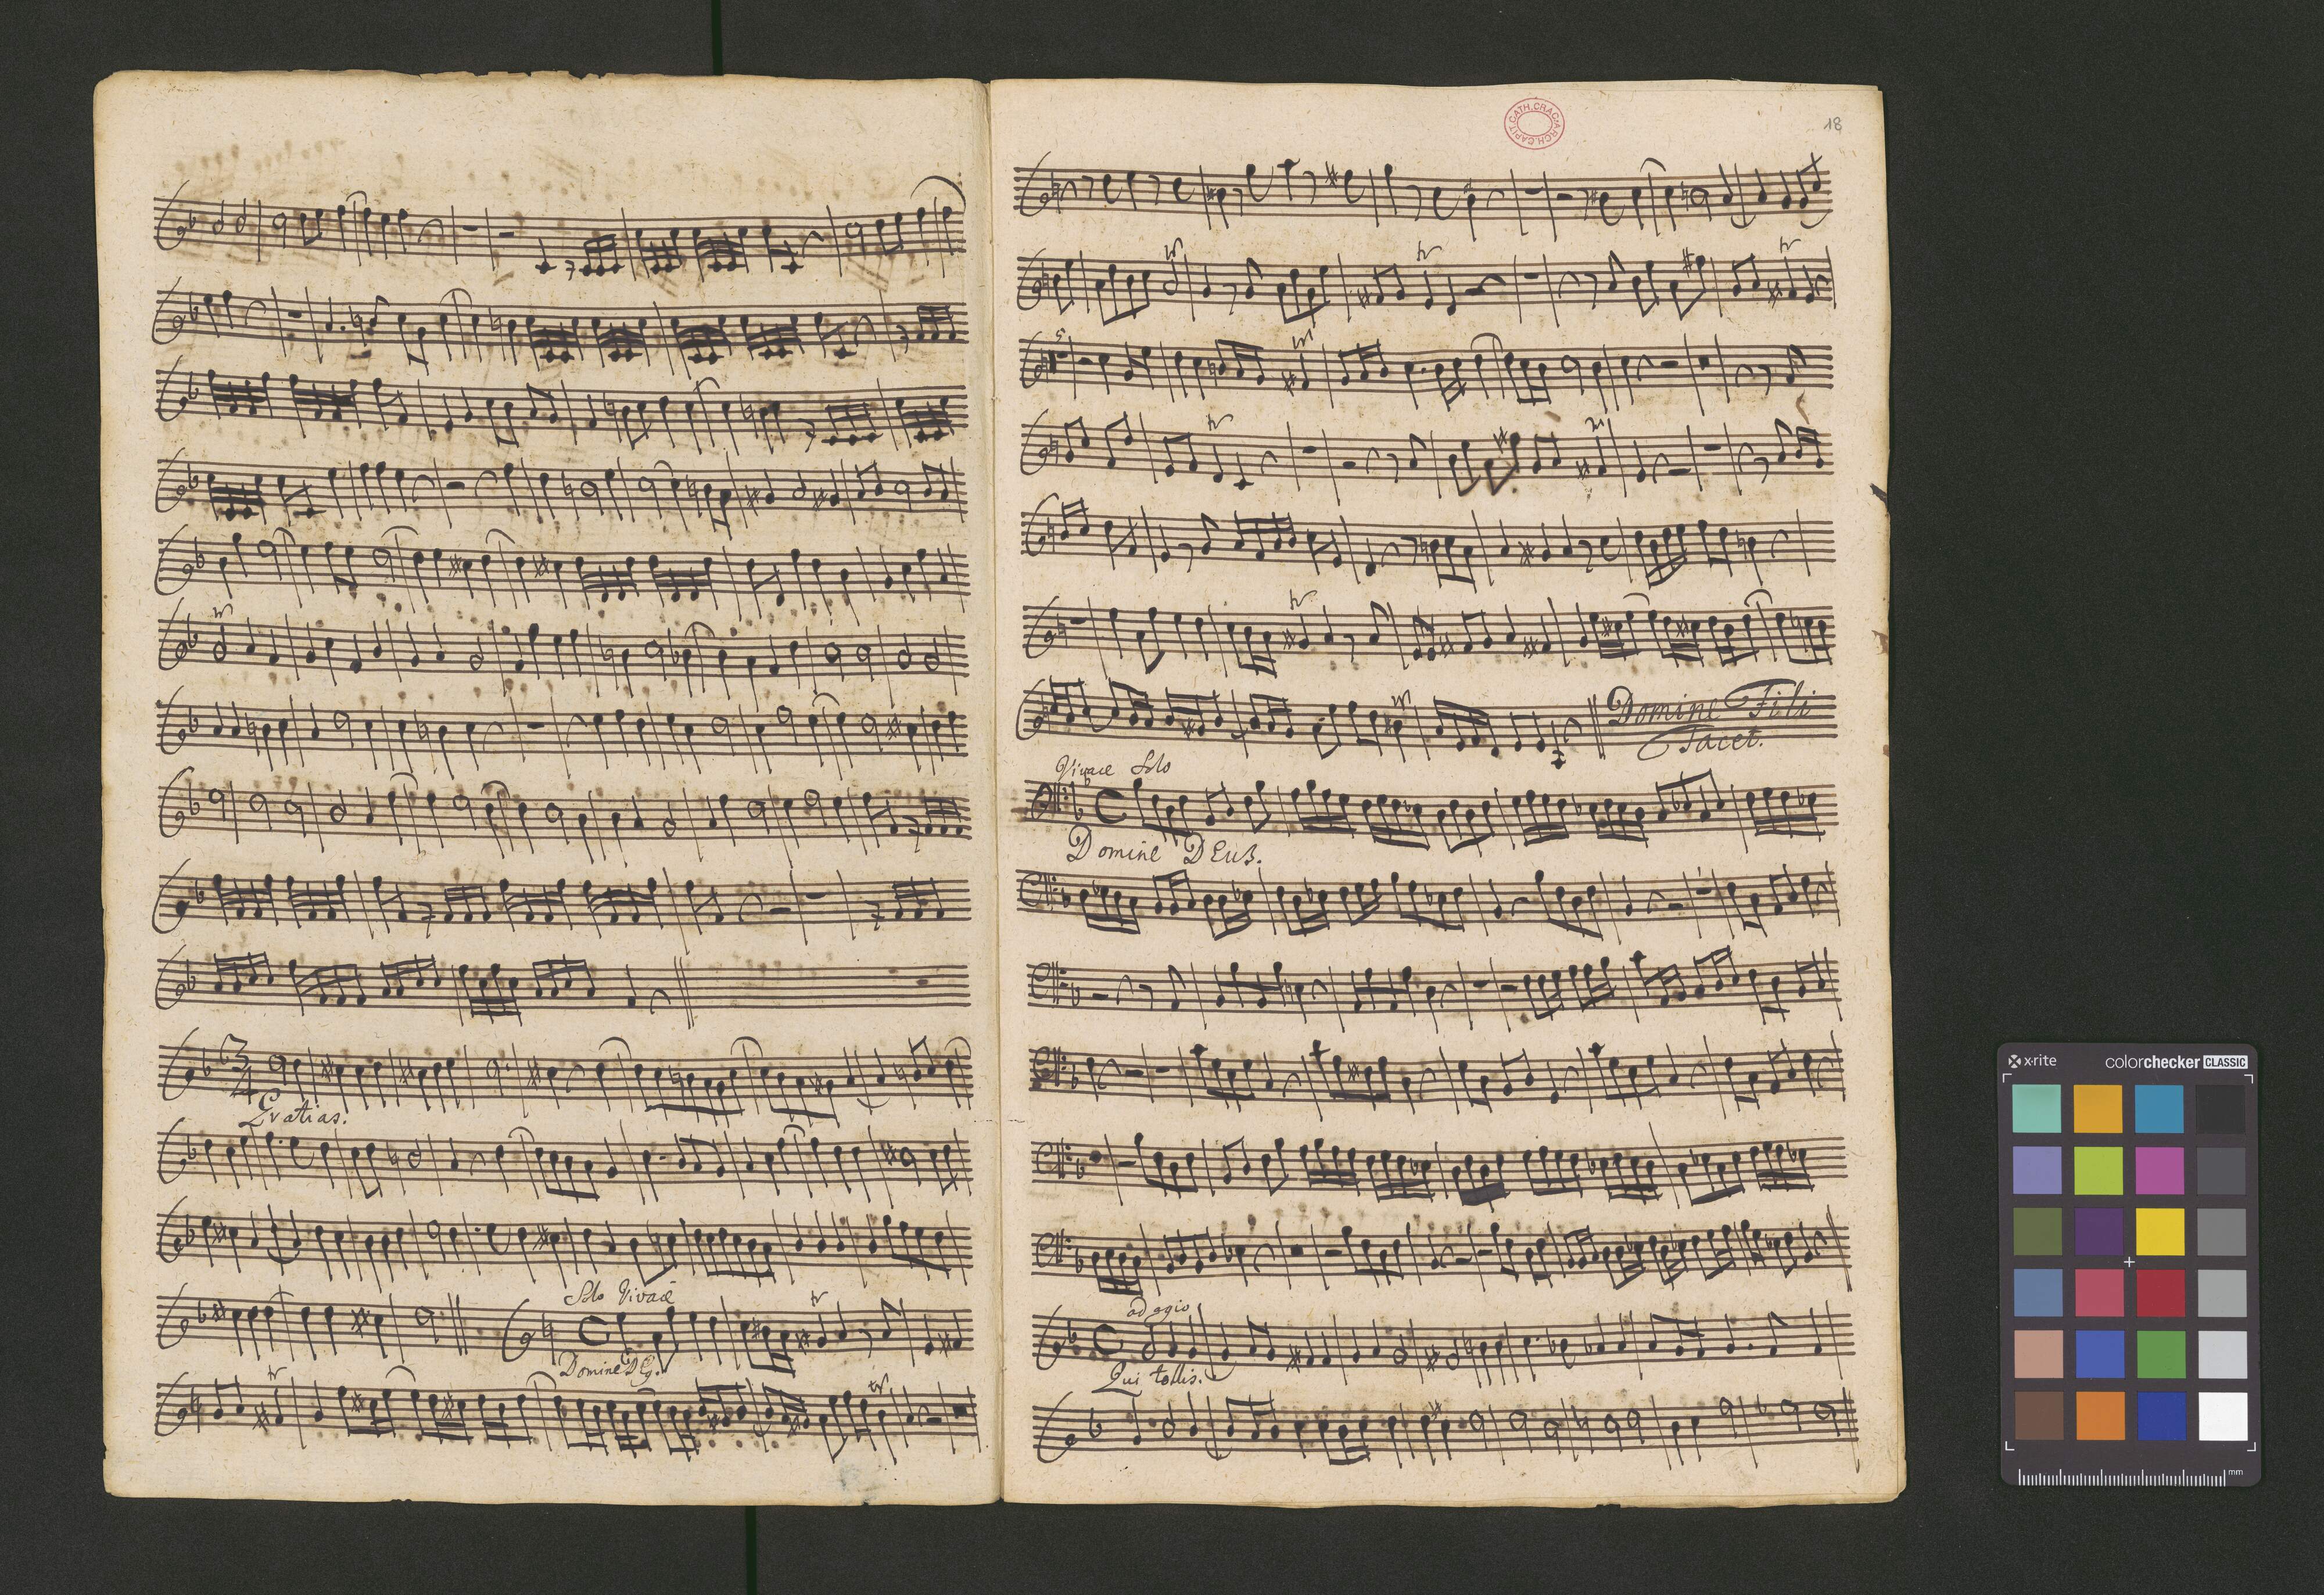 3/4
Gratias.
Solo Vivace
tr
Domine
tr
tr
18
ARCH.CAPIT.CATH.CRAC.
tr
tr
tr
5
tr
tr
tr
tr
Domine Fili
Tacet.
Vivace Solo
Domine DEUS.
adagio
Qui tollis.
x-rite
colorchecker CLASSIC
mm